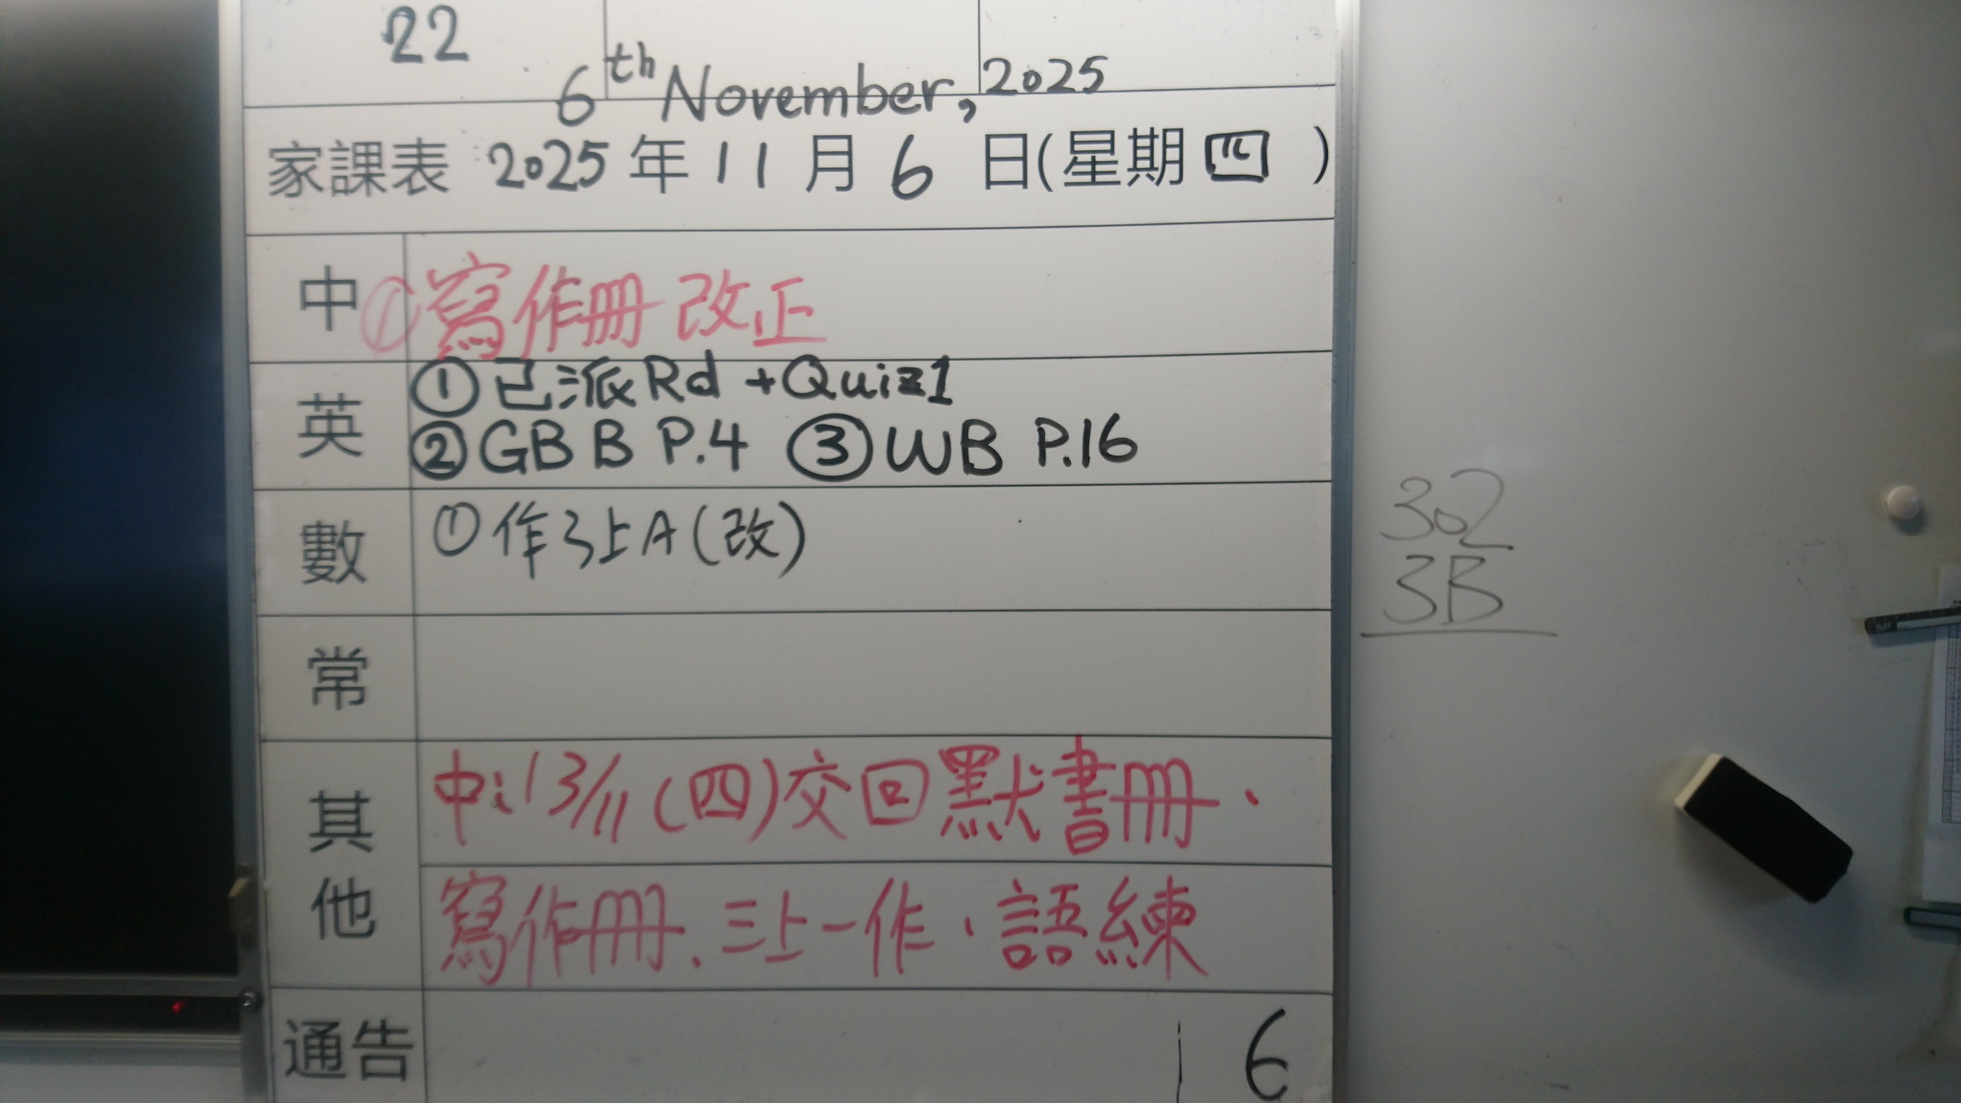 22
6th November, 2025
家課表 2025 年 11 月 6 日(星期四)
中 ①寫作冊 改正
英 ①已派Rd +Quiz1
②GB B P.4 ③WB P.16
數 ①作3上A(改)
常
其他 中:13/11 (四)交回默書冊、
寫作冊、三上一作、語練
通告 1 6
302
3B